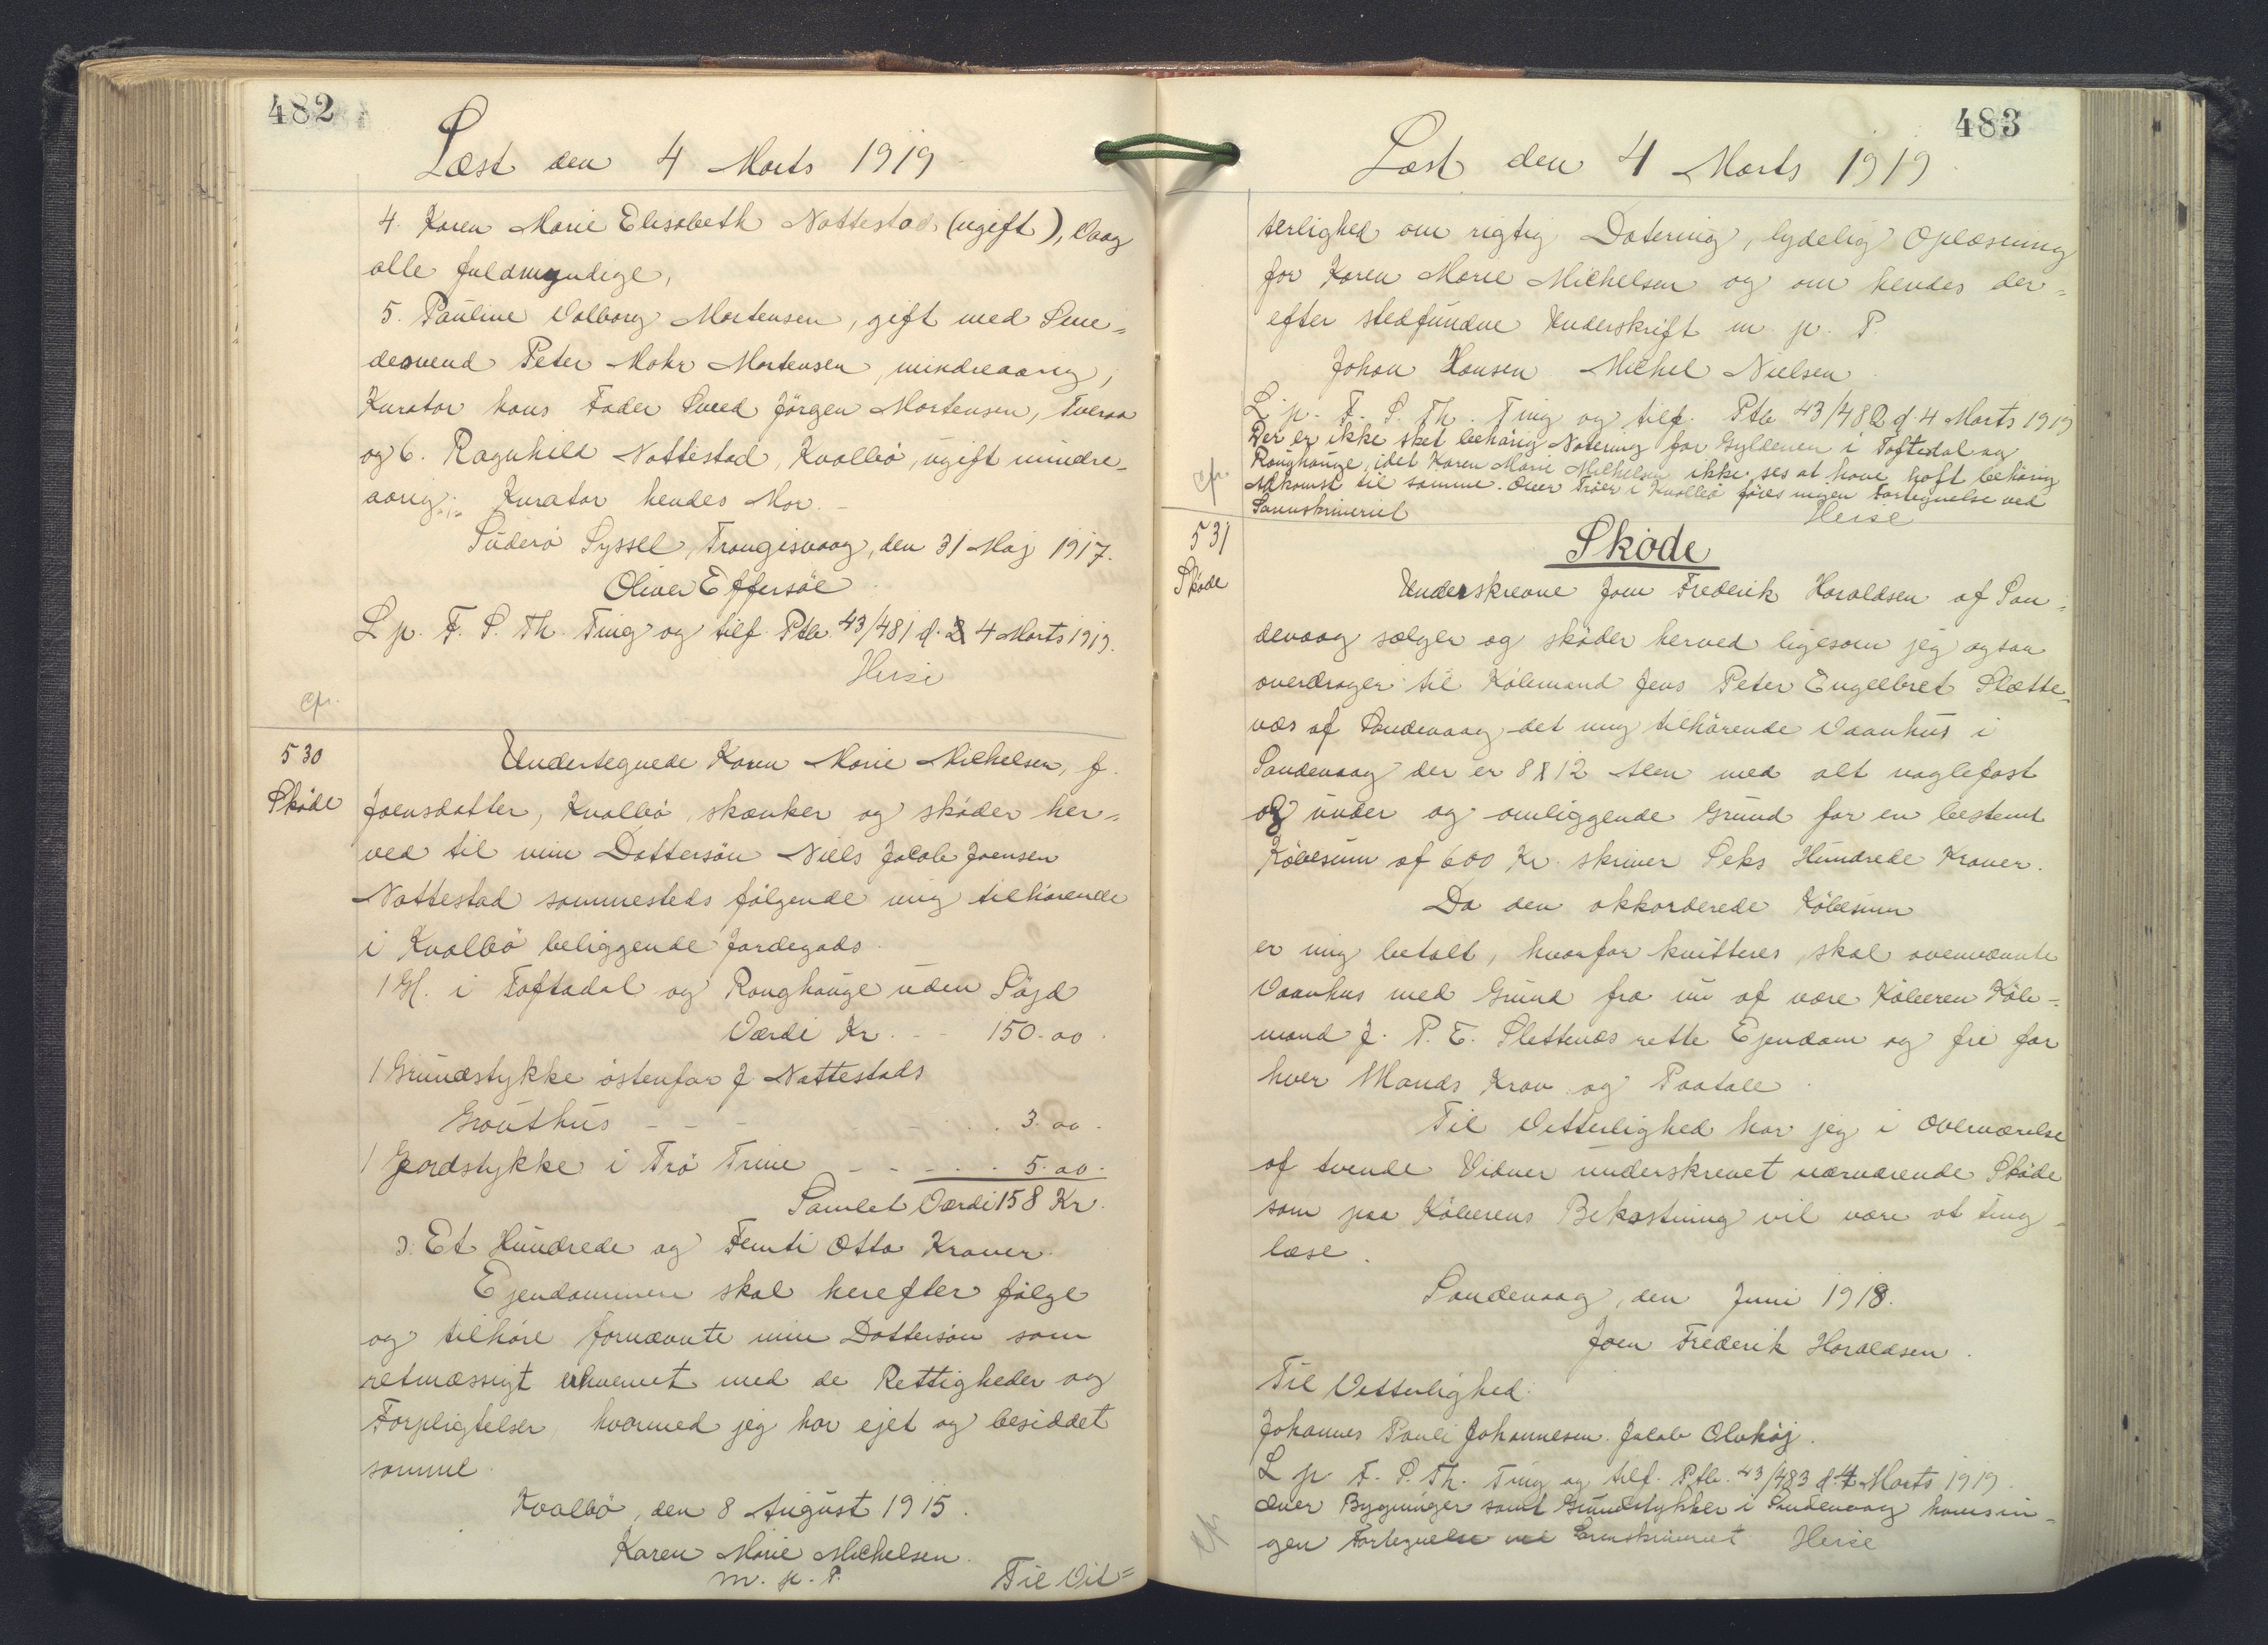 482
Læst den 4 Marts 1919
4. Karen Marie Elisabeth Nattestad (ugift), Vaag
alle fuldmyndige,
5. Pauline Valborg Mortensen, gift med Sme-
desvend Peter Mohr Mortensen, mindreaarig,
Kurator hans Fader Smed Jörgen Mortensen, Tveraa
og 6. Ragnhild Nattestad, Kvalbö, ugift mindre-
aarig; Kurator hendes Mor.
Süderö Syssel, Trangisvaag, den 31 Maj 1917.
Oliver Effersöe
L. p. F. S. Th. Ting og tilf. Ptb. 43/481 d. 4 Marts 1919.
Heise
cfr.
530
Skøde
Undertegnede Karen Marie Michelsen, f.
Joensdatter, Kvalbö, skænker og skøder her-
ved til min Dattersön Niels Jacob Joensen
Nattestad sammesteds fölgende mig tilhörende
i Kvalbö beliggende Jordegods.
1 Gl. i Toftadal og Ranghauge uden Söjd
Værdi Kr. - - 150.00.
1 Grundstykke östenfor J. Nattestads
Grouthus - - - - - . . 3.00.
1 Jordstykke i Trö Trine - - - . . . 5.00.
Samlet Værdi 158 Kr.
ɔ: Et Hundrede og Femti Otte Kroner.
Ejendommen skal herefter fölge
og tilhöre fornævnte min Dattersön som
retmæssigt erhvervet med de Rettigheder og
Forpligtelser, hvormed jeg har ejet og besiddet
samme
Kvalbö, den 8 August 1915.
Karen Marie Michelsen
m. p. P.
Til Vit=
483
Læst den 4 Marts 1919
terlighed om rigtig Datering, lydelig Oplæsning
for Karen Marie Michelsen og om hendes der-
efter stedfundne Underskrift m. p. P.
Johan Hansen Michel Nielsen
L. p. F. S. Th. Ting og tilf. Ptb 43/482 d. 4 Marts 1919
Der er ikke sket behörig Notering for Gyldenen i Toftedal og
Ranghauge, idet Karen Marie Michelsen ikke ses at have haft behörig
Adkomst til samme. Over Tröer i Kvalbö föres ingen Fortegnelse ved
Sorenskriveriet
Heise
cfr.
531
Skøde
Skøde
Underskrevne Joen Frederik Haraldsen af San-
devaag sælger og skøder herved ligesom jeg ogsaa
overdrager til Købmand Jens Peter Engelbret Slætte-
næs af Sandevaag det mig tilhörende Vaanhus i
Sandevaag der er 8 X 12 Alen med alt naglefast
og under og omliggende Grund for en bestemt
Købesum af 600 Kr. skriver Seks Hundrede Kroner.
Da den akkorderede Købesum
er mig betalt, hvorfor kvitteres, skal ovennævnte
Vaanhus med Grund fra nu af være Køberen Køb-
mand J. P. E. Slettenæs rette Ejendom og fri for
hver Mands Krav og Paatale.
Til Vitterlighed har jeg i Overværelse
af tvende Vidner underskrevet nærværende Skøde
som paa Køberens Bekostning vil være at ting-
læse.
Sandevaag, den Juni 1918.
Joen Frederik Haraldsen.
Til Vitterlighed:
Johannes Pauli Johannesen. Jacob Olvhöj.
L. p. F. S. Th. Ting og tilf. Ptb. 43/483 d. 4 Marts 1919
Over Bygninger samt Grundstykker i Sandevaag haves in-
gen Fortegnelse ved Sorenskriveriet Heise
cfr